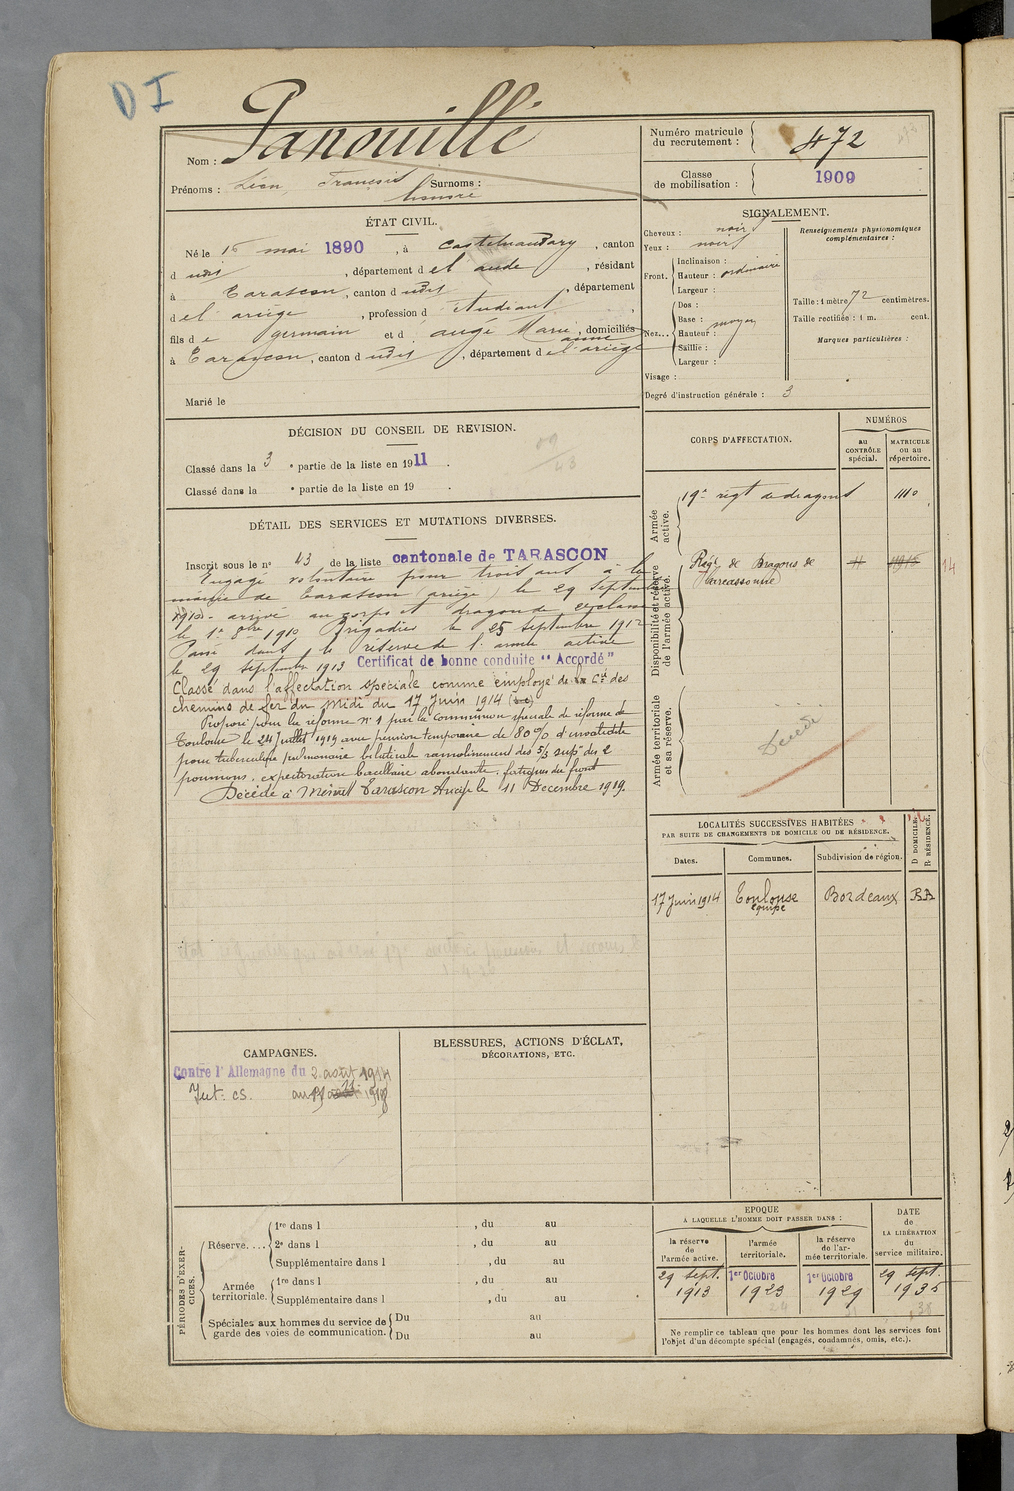 D I
Nom : Panouillé
Prénoms : Léon, François Surnoms :
Honoré
Numéro matricule
du recrutement : 472
Classe
de mobilisation : 1909
ÉTAT CIVIL.
Né le 16 mai 1890, à Castelnaudary, canton
d udit, département d el aude, résidant
à Tarascon, canton d udit, département
d el ariège, profession d étudiant,
fils d e germain et d auge Marie anne, domiciliés
à Tarascon, canton d udit, département d e l'ariège
Marié le
SIGNALEMENT.
Cheveux : noirs
Yeux : noirs
Front. Inclinaison :
Hauteur : ordinaire
Largeur :
Nez... Dos :
Base :
Hauteur : moyen
Saillie :
Largeur :
Visage :
Renseignements physionomiques
complémentaires :
Taille : 1 mètre 72 centimètres.
Taille rectifiée : 1 m. cent.
Marques particulières :
Degré d'instruction générale : 3
DÉCISION DU CONSEIL DE REVISION.
Classé dans la 3 e partie de la liste en 1911.
Classé dans la e partie de la liste en 19 .
DÉTAIL DES SERVICES ET MUTATIONS DIVERSES.
Inscrit sous le n° 43 de la liste cantonale de TARASCON
Engagé volontaire pour trois ans à la
mairie de Tarascon (ariège) le 29 septembre
1910 - arrivé au corps et dragon de 2e classe
le 1er 8bre 1910 Brigadier le 25 septembre 1912
Passé dans la réserve de l'armée active
le 29 septembre 1913 Certificat de bonne conduite "Accordé"
Classé dans l'affectation spéciale comme employé de la Cie des
chemins de fer du Midi du 17 Juin 1914
Proposé pour la réforme n° 1 par la commission spéciale de réforme de
Toulouse le 24 Juillet 1919 avec pension temporaire de 80 % d'invalidité
pour tuberculose pulmonaire bilatérale ramollissement des 5/3 supr des 2
poumons, expectoration bacillaire abondante. fatigues du front
Décédé à Tarascon Ariège le 11 Decembre 1919.
CORPS D'AFFECTATION.
NUMÉROS
au
CONTRÔLE
spécial.
MATRICULE
ou au
répertoire.
Armée
active.
19e régt de dragons 1110
Disponibilité et réserve
de l'armée active.
Régt de Dragons de
Carcassonne
14
Armée territoriale
et sa réserve.
Décédé
LOCALITÉS SUCCESSIVES HABITÉES
PAR SUITE DE CHANGEMENTS DE DOMICILE OU DE RÉSIDENCE.
D. DOMICILE.
R. RÉSIDENCE.
Dates. Communes. Subdivision de région.
17 Juin 1914 Toulouse Bordeaux
équipe
CAMPAGNES.
Contre l'Allemagne du 2 août 1914
BLESSURES, ACTIONS D'ÉCLAT,
DÉCORATIONS, ETC.
PÉRIODES D'EXERCICES.
Réserve.... 1re dans l , du au
2e dans l , du au
Supplémentaire dans l , du au
Armée
territoriale. 1re dans l , du au
Supplémentaire dans l , du au
Spéciales aux hommes du service de
garde des voies de communication. Du au
Du au
EPOQUE
À LAQUELLE L'HOMME DOIT PASSER DANS :
la réserve
de
l'armée active.
l'armée
territoriale.
la réserve
de l'ar-
mée territoriale.
DATE
de
LA LIBÉRATION
du
service militaire.
29 sept. 1er Octobre 1er Octobre 29 sept.
1913 1923 1929 1935
Ne remplir ce tableau que pour les hommes dont les services font
l'objet d'un décompte spécial (engagés, condamnés, omis, etc.).